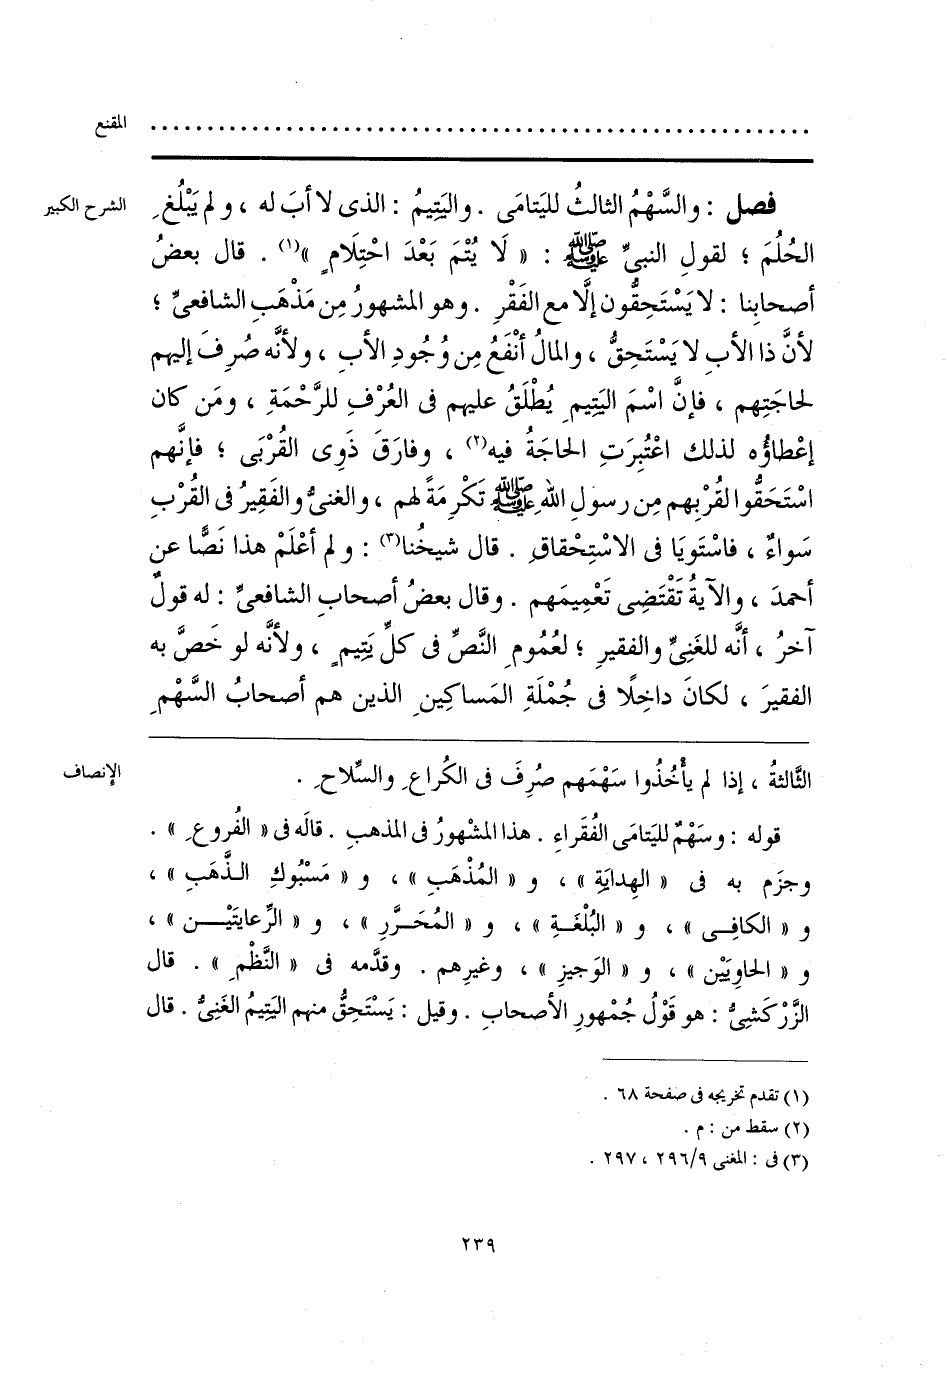 المقنع ........................................................
الشرح الكبير
فصل : والسَّهْمُ الثالثُ لليَتامَى . واليَتِيمُ : الذى لا أبَ له ، ولم يَبْلُغِ
الحُلُمَ ؛ لقولِ النبىِّ ﷺ : « لَا يُتْمَ بَعْدَ احْتِلَامٍ »(١) . قال بعضُ
أصحابِنا : لا يَسْتَحِقُّون إلَّا مع الفَقْرِ . وهو المشهورُ مِن مَذْهَبِ الشافعىِّ ؛
لأنَّ ذا الأبِ لا يَسْتَحِقُّ ، والمالُ أنْفَعُ مِن وُجُودِ الأبِ ، ولأنَّه صُرِفَ إليهم
لحاجَتِهم ، فإنَّ اسْمَ اليَتِيمِ يُطْلَقُ عليهم فى العُرْفِ للرَّحْمَةِ ، ومَن كان
إعْطاؤُه لذلك اعْتُبِرَتِ الحاجَةُ فيه(٢) ، وفارَقَ ذَوِى القُرْبَى ؛ فإنَّهم
اسْتَحَقُّوا لقُرْبِهم مِن رسولِ اللهِ ﷺ تَكْرِمَةً لهم ، والغنىُّ والفَقِيرُ فى القُرْبِ
سَواءٌ ، فاسْتَويَا فى الاسْتِحْقاقِ . قال شيخُنا(٣) : ولم أعْلَمْ هذا نَصًّا عن
أحمدَ ، والآيةُ تَقْتَضِى تَعْمِيمَهم . وقال بعضُ أصحابِ الشافعىِّ : له قولٌ
آخرُ ، أنَّه للغَنِىِّ والفقيرِ ؛ لعُمُومِ النَّصِّ فى كلِّ يَتِيمٍ ، ولأنَّه لو خَصَّ به
الفقيرَ ، لكانَ داخِلًا فى جُمْلَةِ المَساكِينِ الذين هم أصحابُ السَّهْمِ
الإنصاف
الثَّالثةُ ، إذا لم يأْخُذُوا سَهْمَهم صُرِفَ فى الكُراعِ والسِّلاحِ .
قوله : وسَهْمٌ لليَتامَى الفُقَراءِ . هذا المشْهورُ فى المذهبِ . قالَه فى « الفُروعِ » .
وجزَم به فى « الهِدايَةِ » ، و « المُذْهَبِ » ، و « مَسْبُوكِ الذَّهَبِ » ،
و « الكافِى » ، و « البُلْغَةِ » ، و « المُحَرَّرِ » ، و « الرِّعايتَيْن » ،
و « الحاوِيَيْن » ، و « الوَجيزِ » ، وغيرِهم . وقدَّمه فى « النَّظْمِ » . قال
الزَّرْكَشِىُّ : هو قَوْلُ جُمْهورِ الأصحابِ . وقيل : يَسْتَحِقُّ منهم اليَتِيمُ الغَنِىُّ . قال
(١) تقدم تخريجه فى صفحة ٦٨ .
(٢) سقط من : م .
(٣) فى : المغنى ٢٩٦/٩ ، ٢٩٧ .
٢٣٩